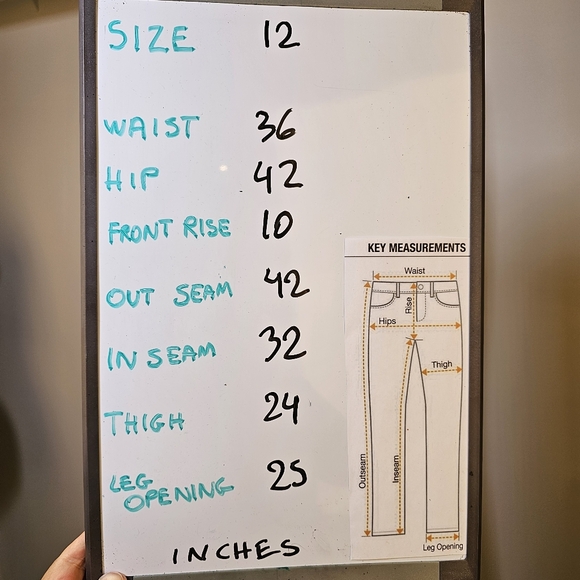 SIZE 12
WAIST 36
HIP 42
FRONT RISE 10
OUT SEAM 42
IN SEAM 32
THIGH 24
LEG
OPENING 25
INCHES
KEY MEASUREMENTS
Waist
Rise
Hips
Thigh
Outseam
Inseam
Leg Opening